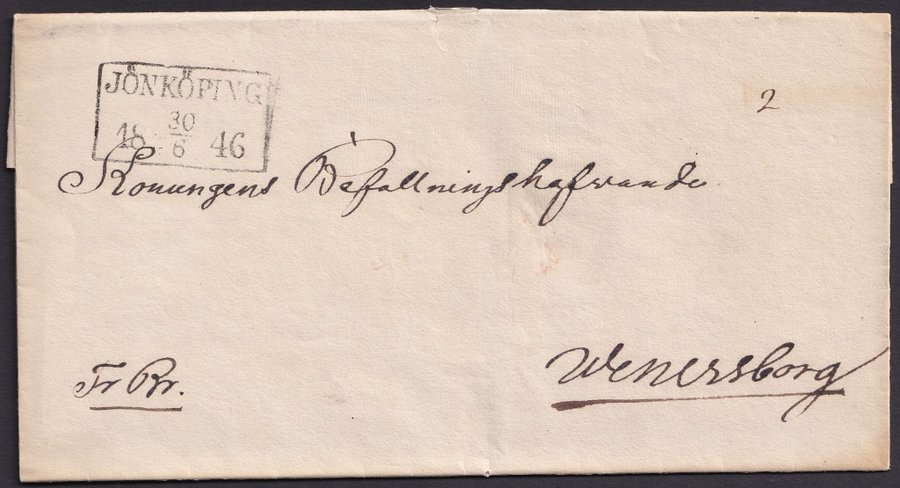 JÖNKÖPING
18 30/6 46
2
Konungens Befallningshafwande
Fr Br.
Wenersborg